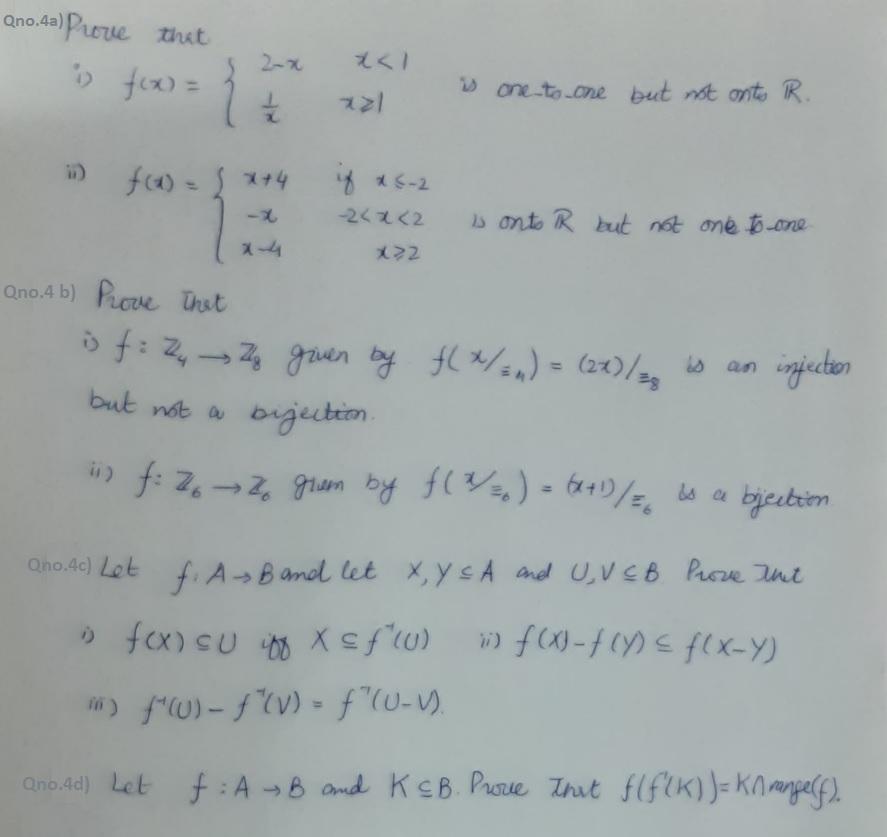 Qno.4a) Prove that
i) f(x) = { 2-x x<1
1/x x≥1 is one-to-one but not onto ℝ.
ii) f(x) = { x+4 if x≤-2
-x -2<x<2 is onto ℝ but not one-to-one
x-4 x≥2
Qno.4 b) Prove that
i) f: ℤ₄ → ℤ₈ given by f(x/≡₄) = (2x)/≡₈ is an injection
but not a bijection.
ii) f: ℤ₆ → ℤ₆ given by f(x/≡₆) = (x+1)/≡₆ is a bijection
Qno.4c) Let f: A→B and let X, Y ⊆ A and U, V ⊆ B Prove that
i) f(X) ⊆ U iff X ⊆ f⁻¹(U) ii) f(X) - f(Y) ⊆ f(X-Y)
iii) f⁻¹(U) - f⁻¹(V) = f⁻¹(U-V).
Qno.4d) Let f: A→B and K ⊆ B. Prove that f(f⁻¹(K)) = K∩range(f).